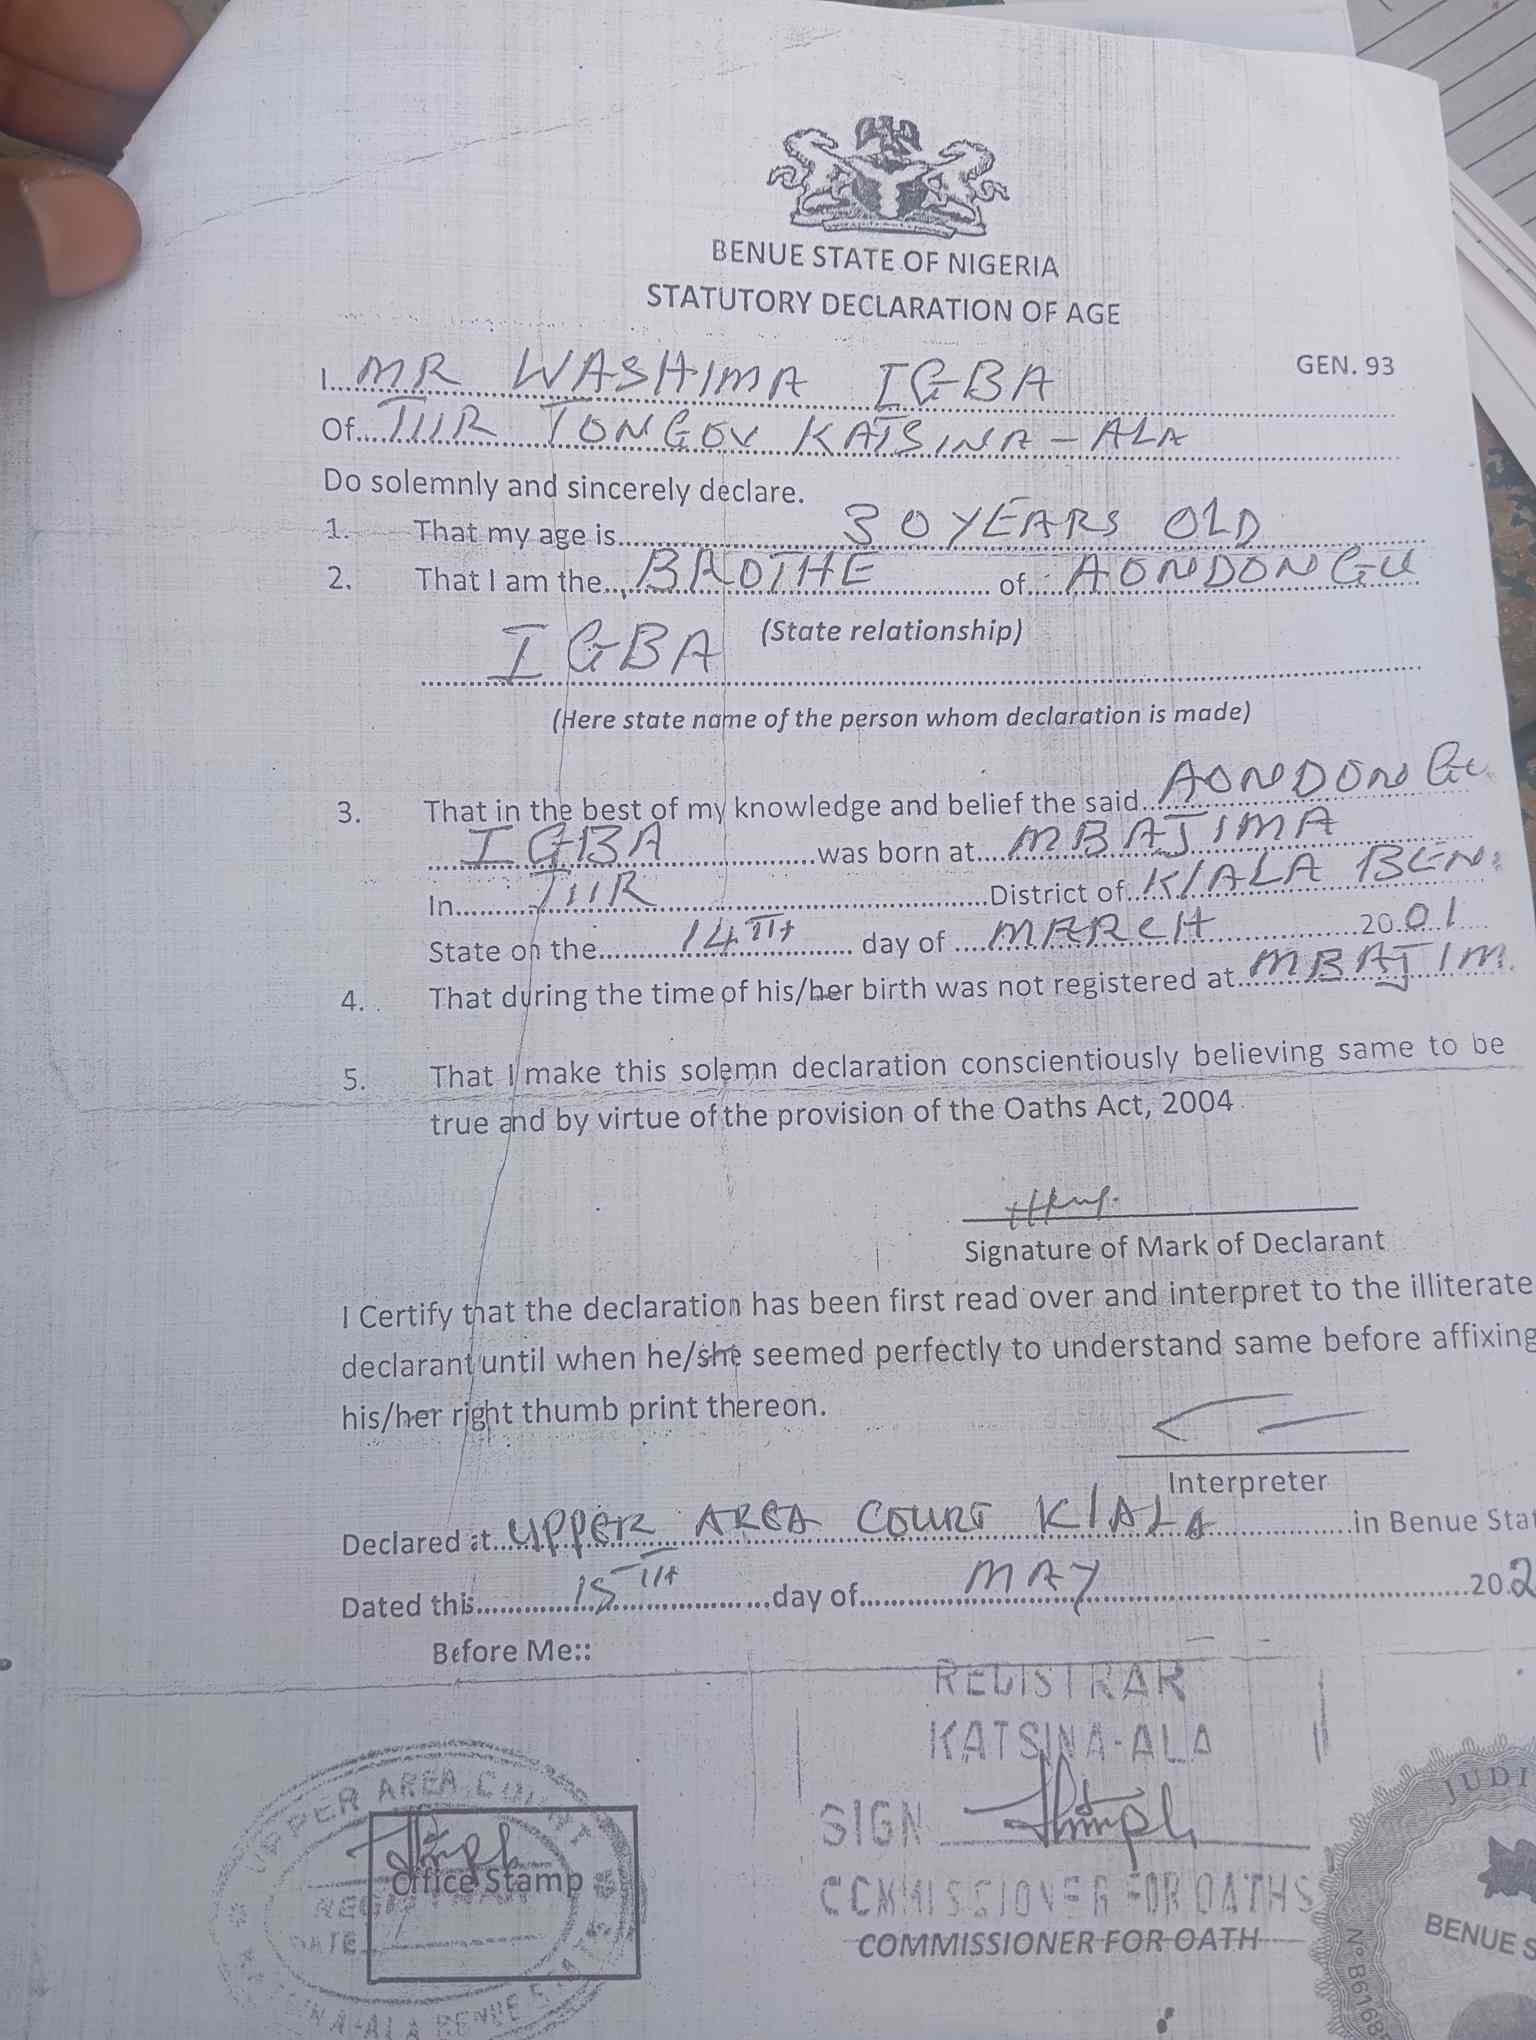 BENUE STATE OF NIGERIA
STATUTORY DECLARATION OF AGE
GEN. 93
I...MR WASHIMA IGBA
Of...TIIR TONGOV KATSINA-ALA
Do solemnly and sincerely declare.
1. That my age is...30 YEARS OLD
2. That I am the...BROTHE...of...AONDONGU
(State relationship)
IGBA
(Here state name of the person whom declaration is made)
3. That in the best of my knowledge and belief the said...AONDONGU
IGBA...was born at...MBAJIMA
In...TIIR...District of...K/ALA BEN.
State on the...14TH...day of...MARCH...2001
4. That during the time of his/her birth was not registered at...MBAJIM.
5. That I make this solemn declaration conscientiously believing same to be
true and by virtue of the provision of the Oaths Act, 2004
Signature of Mark of Declarant
I Certify that the declaration has been first read over and interpret to the illiterate
declarant until when he/she seemed perfectly to understand same before affixing
his/her right thumb print thereon.
Interpreter
Declared at...UPPER AREA COURT K/ALA...in Benue Stat
Dated this...15TH...day of...MAY...202
Before Me::
REGISTRAR
KATSINA-ALA
SIGN
COMMISSIONER FOR OATHS
COMMISSIONER FOR OATH
UPPER AREA COURT
Office Stamp
REGISTRAR
DATE
KATSINA-ALA BENUE STATE
JUDI
BENUE S
Nº B6168